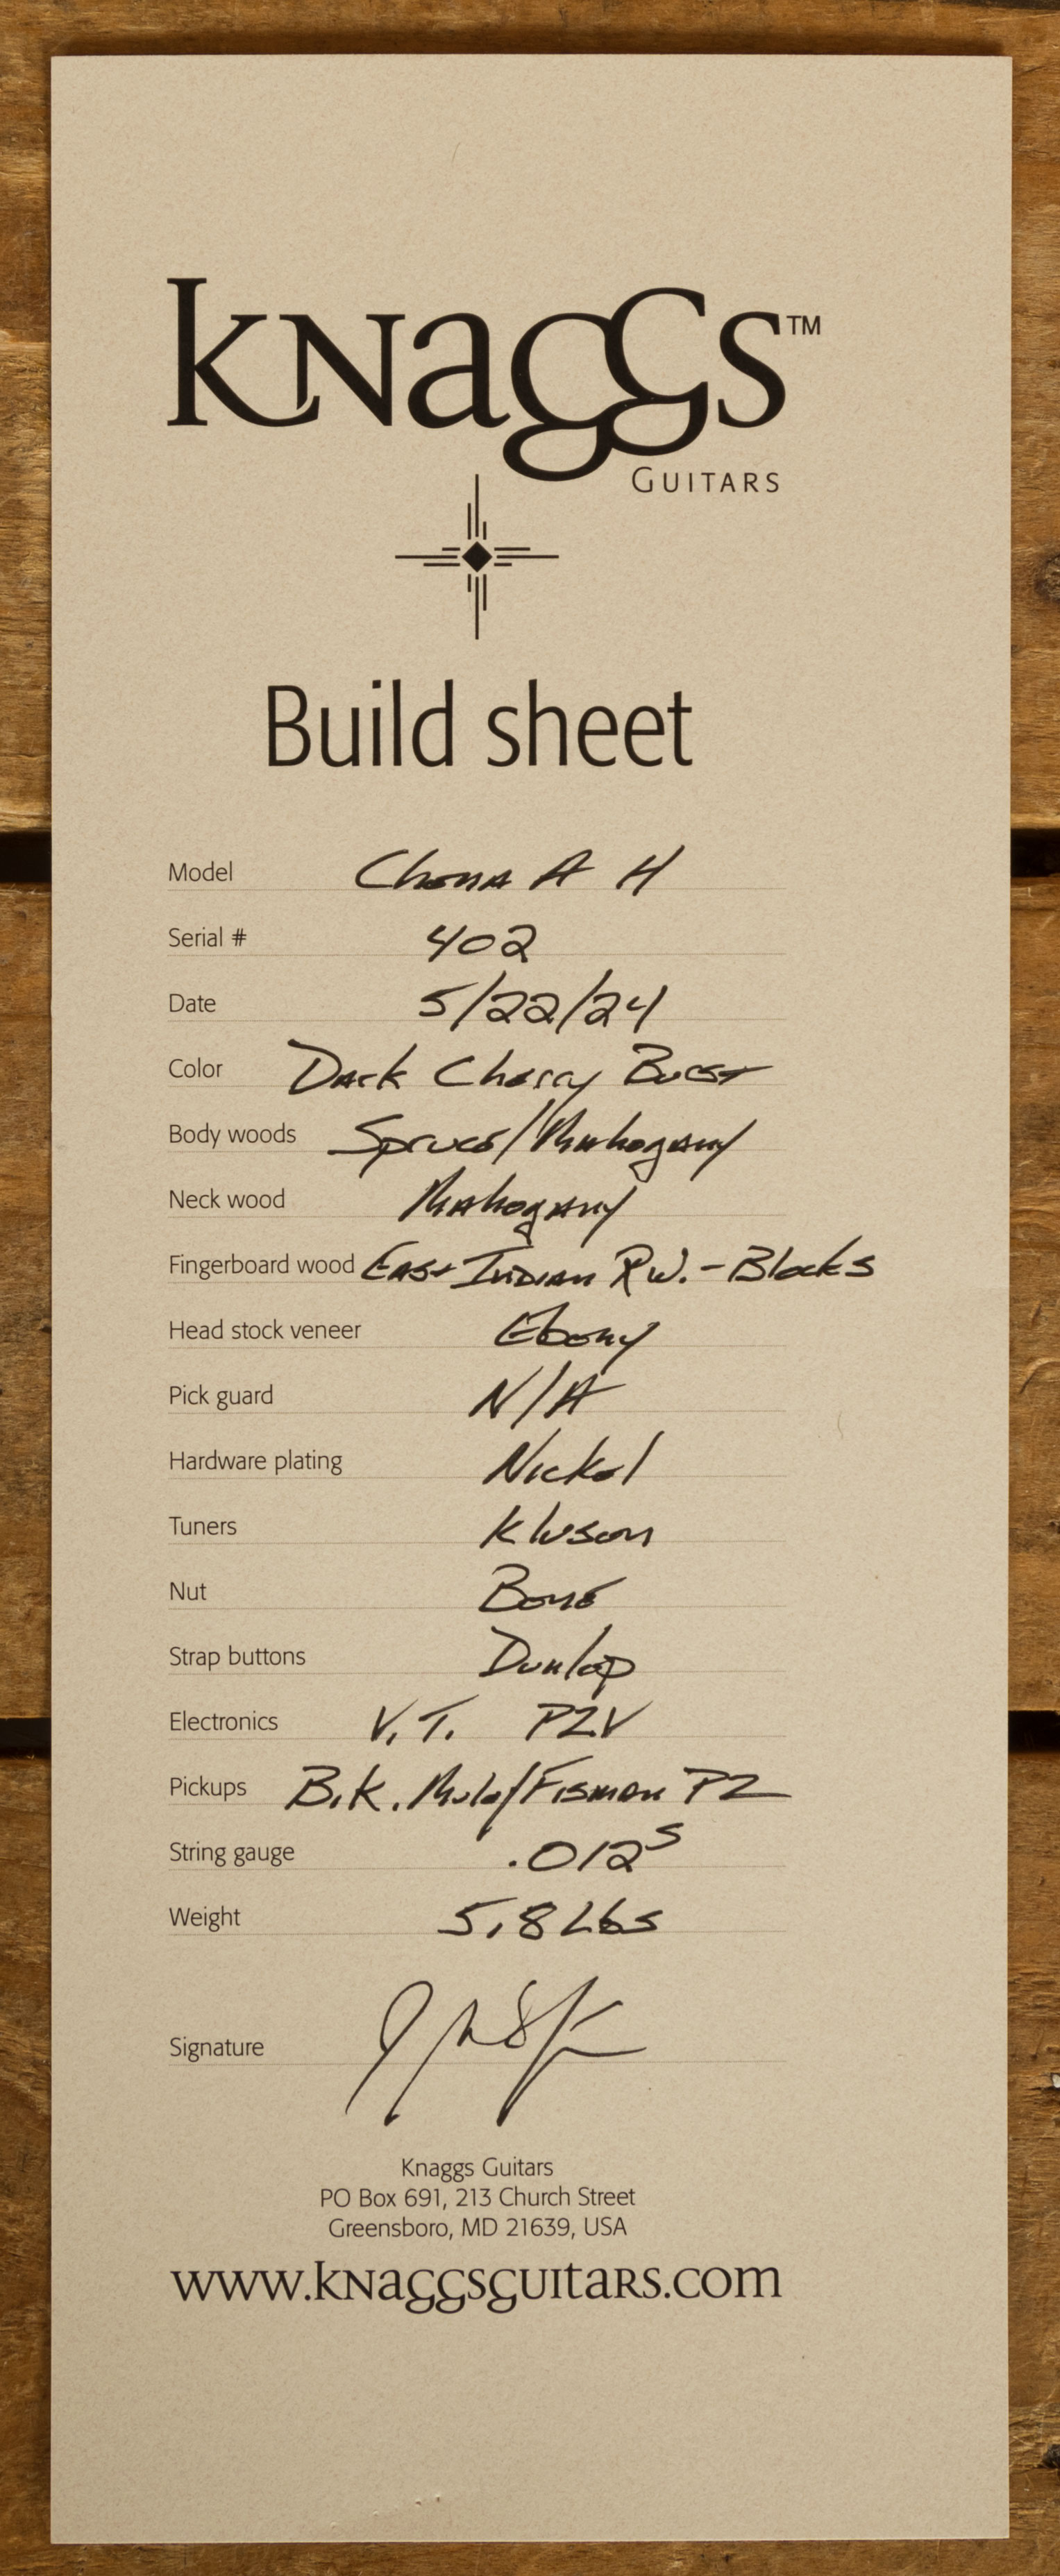 KNAGGS™
GUITARS
Build sheet
Model Chena A H
Serial # 402
Date 5/22/24
Color Dark Cherry Burst
Body woods Spruce/Mahogany
Neck wood Mahogany
Fingerboard wood East Indian R.W. - Blocks
Head stock veneer Ebony
Pick guard N/A
Hardware plating Nickel
Tuners Kluson
Nut Bone
Strap buttons Dunlop
Electronics V.T. PZV
Pickups B.K. Mule/Fisman PZ
String gauge .012s
Weight 5.8 Lbs
Signature
Knaggs Guitars
PO Box 691, 213 Church Street
Greensboro, MD 21639, USA
www.knaggsguitars.com